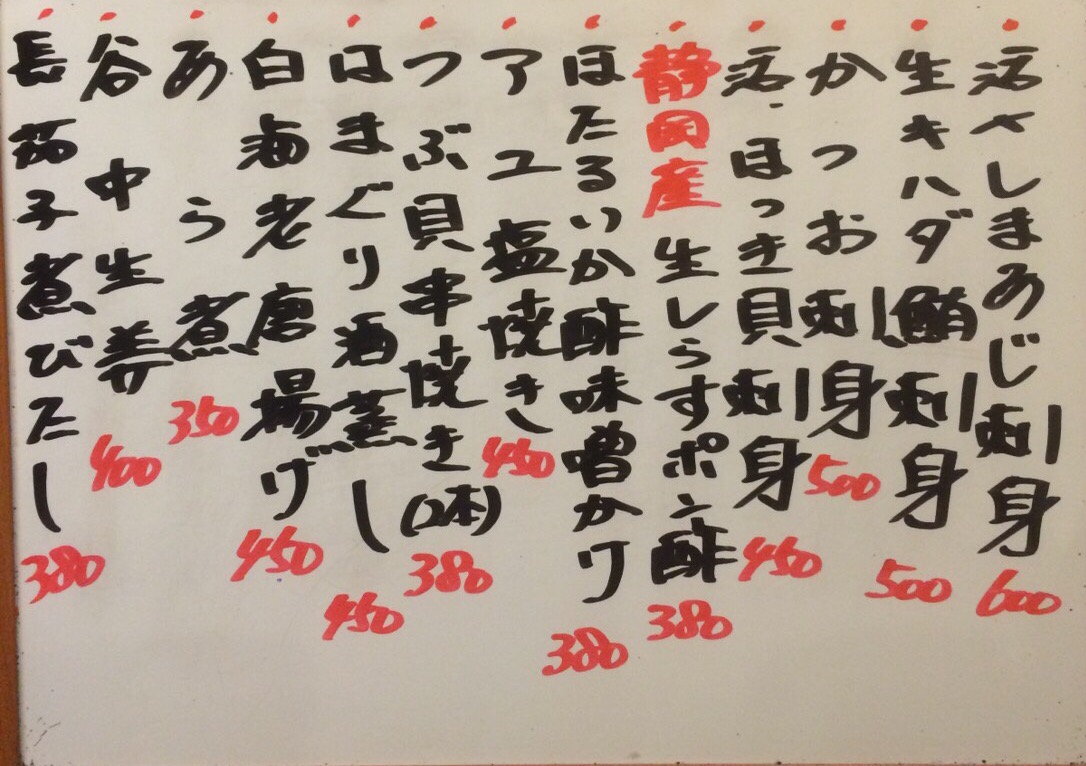 活さしまあじ刺身 600
生キハダ鮪刺身 500
かつお刺身 500
活、ほっき貝刺身 450
静岡産生しらすポン酢 380
ほたるいか酢味噌かけ 380
アユ塩焼き 450
つぶ貝串焼き(2本) 380
はまぐり酒蒸し 450
白海老唐揚げ 450
あら煮 350
谷中生姜 400
長茄子煮びたし 380